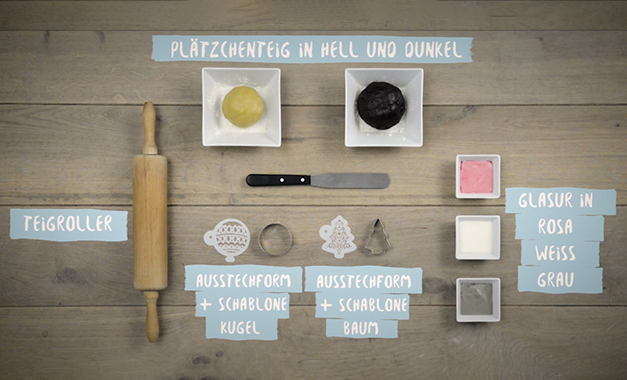 PLÄTZCHENTEIG IN HELL UND DUNKEL
TEIGROLLER
AUSSTECHFORM
+ SCHABLONE
KUGEL
AUSSTECHFORM
+ SCHABLONE
BAUM
GLASUR IN
ROSA
WEISS
GRAU